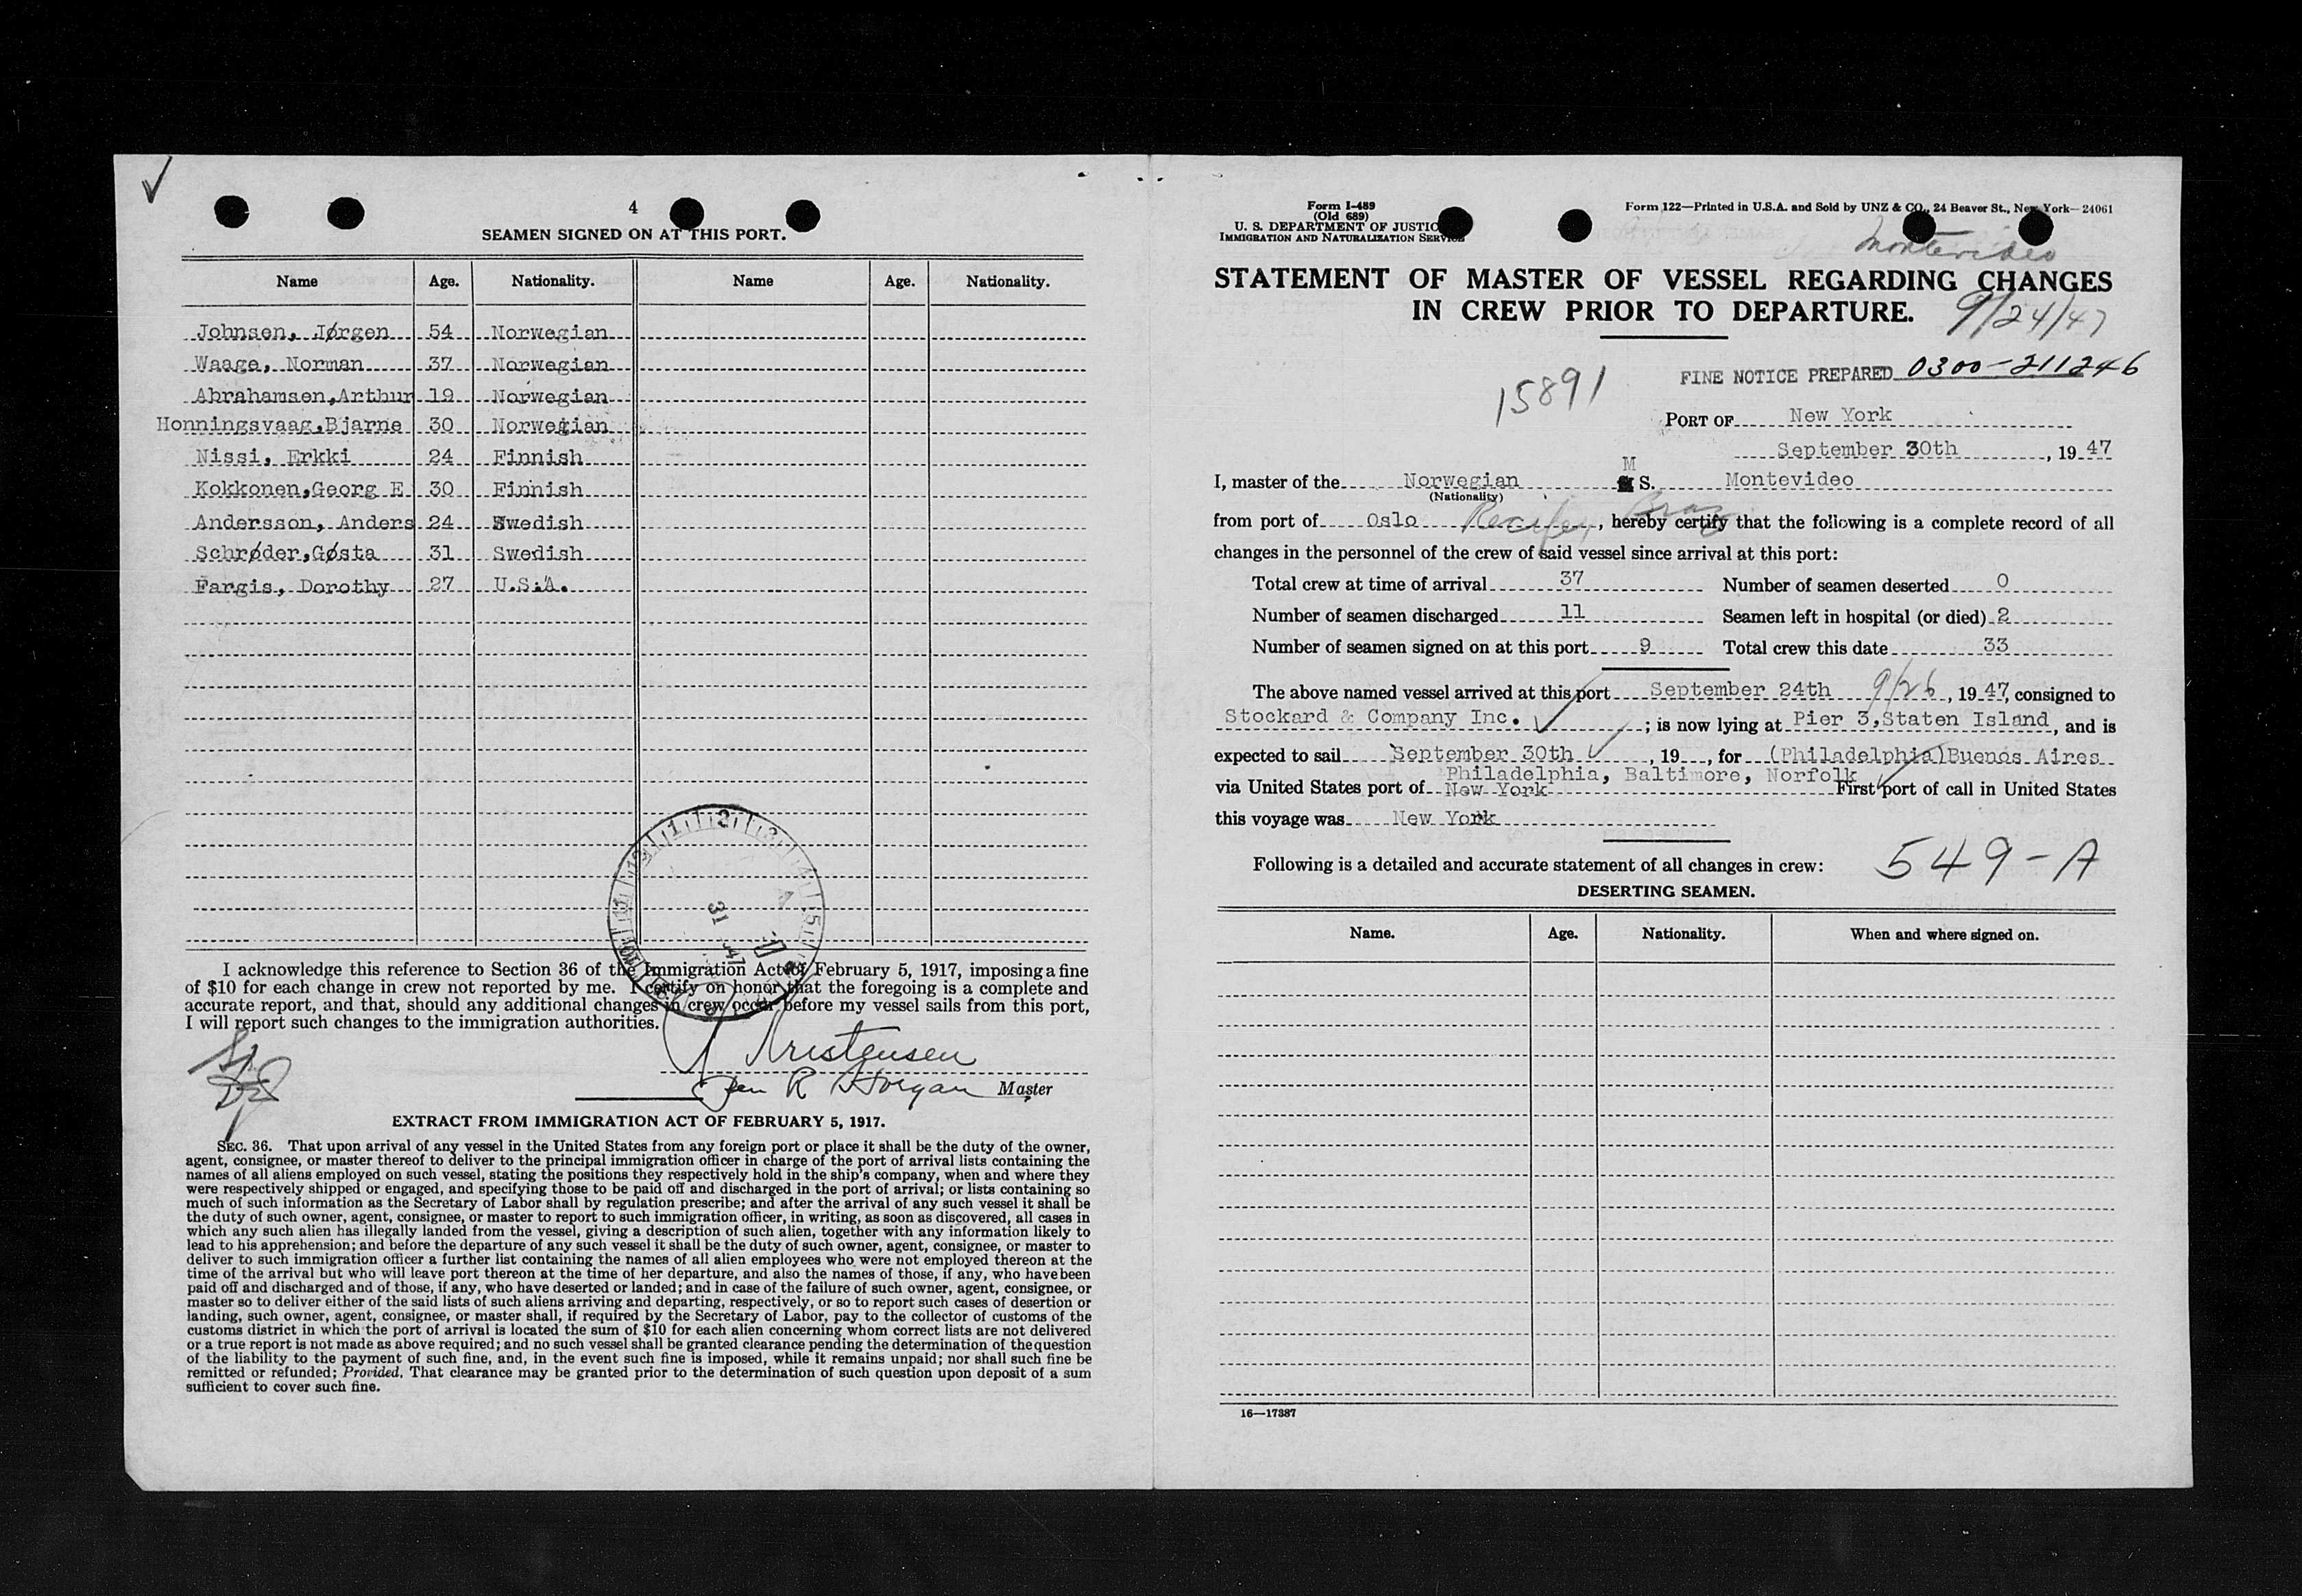 4
SEAMEN SIGNED ON AT THIS PORT.
Name Age. Nationality. Name Age. Nationality.
Johnsen, Jørgen 54 Norwegian
Waage, Norman 37 Norwegian
Abrahamsen,Arthur 19 Norwegian
Honningsvaag,Bjarne 30 Norwegian
Nissi, Erkki 24 Finnish
Kokkonen,Georg E 30 Finnish
Andersson, Anders 24 Swedish
Schrøder,Gøsta 31 Swedish
Fargis, Dorothy 27 U.S.A.
I acknowledge this reference to Section 36 of the Immigration Act of February 5, 1917, imposing a fine
of $10 for each change in crew not reported by me. I certify on honor that the foregoing is a complete and
accurate report, and that, should any additional changes in crew occur before my vessel sails from this port,
I will report such changes to the immigration authorities.
Kristensen
R Horgan Master
EXTRACT FROM IMMIGRATION ACT OF FEBRUARY 5, 1917.
SEC. 36. That upon arrival of any vessel in the United States from any foreign port or place it shall be the duty of the owner,
agent, consignee, or master thereof to deliver to the principal immigration officer in charge of the port of arrival lists containing the
names of all aliens employed on such vessel, stating the positions they respectively hold in the ship's company, when and where they
were respectively shipped or engaged, and specifying those to be paid off and discharged in the port of arrival; or lists containing so
much of such information as the Secretary of Labor shall by regulation prescribe; and after the arrival of any such vessel it shall be
the duty of such owner, agent, consignee, or master to report to such immigration officer, in writing, as soon as discovered, all cases in
which any such alien has illegally landed from the vessel, giving a description of such alien, together with any information likely to
lead to his apprehension; and before the departure of any such vessel it shall be the duty of such owner, agent, consignee, or master to
deliver to such immigration officer a further list containing the names of all alien employees who were not employed thereon at the
time of the arrival but who will leave port thereon at the time of her departure, and also the names of those, if any, who have been
paid off and discharged and of those, if any, who have deserted or landed; and in case of the failure of such owner, agent, consignee, or
master so to deliver either of the said lists of such aliens arriving and departing, respectively, or so to report such cases of desertion or
landing, such owner, agent, consignee, or master shall, if required by the Secretary of Labor, pay to the collector of customs of the
customs district in which the port of arrival is located the sum of $10 for each alien concerning whom correct lists are not delivered
or a true report is not made as above required; and no such vessel shall be granted clearance pending the determination of the question
of the liability to the payment of such fine, and, in the event such fine is imposed, while it remains unpaid; nor shall such fine be
remitted or refunded; Provided, That clearance may be granted prior to the determination of such question upon deposit of a sum
sufficient to cover such fine.
Form I-489
(Old 689)
U. S. DEPARTMENT OF JUSTICE
IMMIGRATION AND NATURALIZATION SERVICE
Form 122—Printed in U.S.A. and Sold by UNZ & CO., 24 Beaver St., New York—24061
Montevideo
STATEMENT OF MASTER OF VESSEL REGARDING CHANGES
IN CREW PRIOR TO DEPARTURE.
9/24/47
15891
FINE NOTICE PREPARED 0300-211246
PORT OF New York
September 30th, 1947
I, master of the Norwegian M S. Montevideo
(Nationality)
from port of Oslo Recife, Braz, hereby certify that the following is a complete record of all
changes in the personnel of the crew of said vessel since arrival at this port:
Total crew at time of arrival 37 Number of seamen deserted 0
Number of seamen discharged 11 Seamen left in hospital (or died) 2
Number of seamen signed on at this port 9 Total crew this date 33
The above named vessel arrived at this port September 24th 9/26, 1947, consigned to
Stockard & Company Inc. ; is now lying at Pier 3,Staten Island, and is
expected to sail September 30th, 19 , for (Philadelphia)Buenos Aires
Philadelphia, Baltimore, Norfolk
via United States port of New York First port of call in United States
this voyage was New York
Following is a detailed and accurate statement of all changes in crew: 549-A
DESERTING SEAMEN.
Name. Age. Nationality. When and where signed on.
16—17387